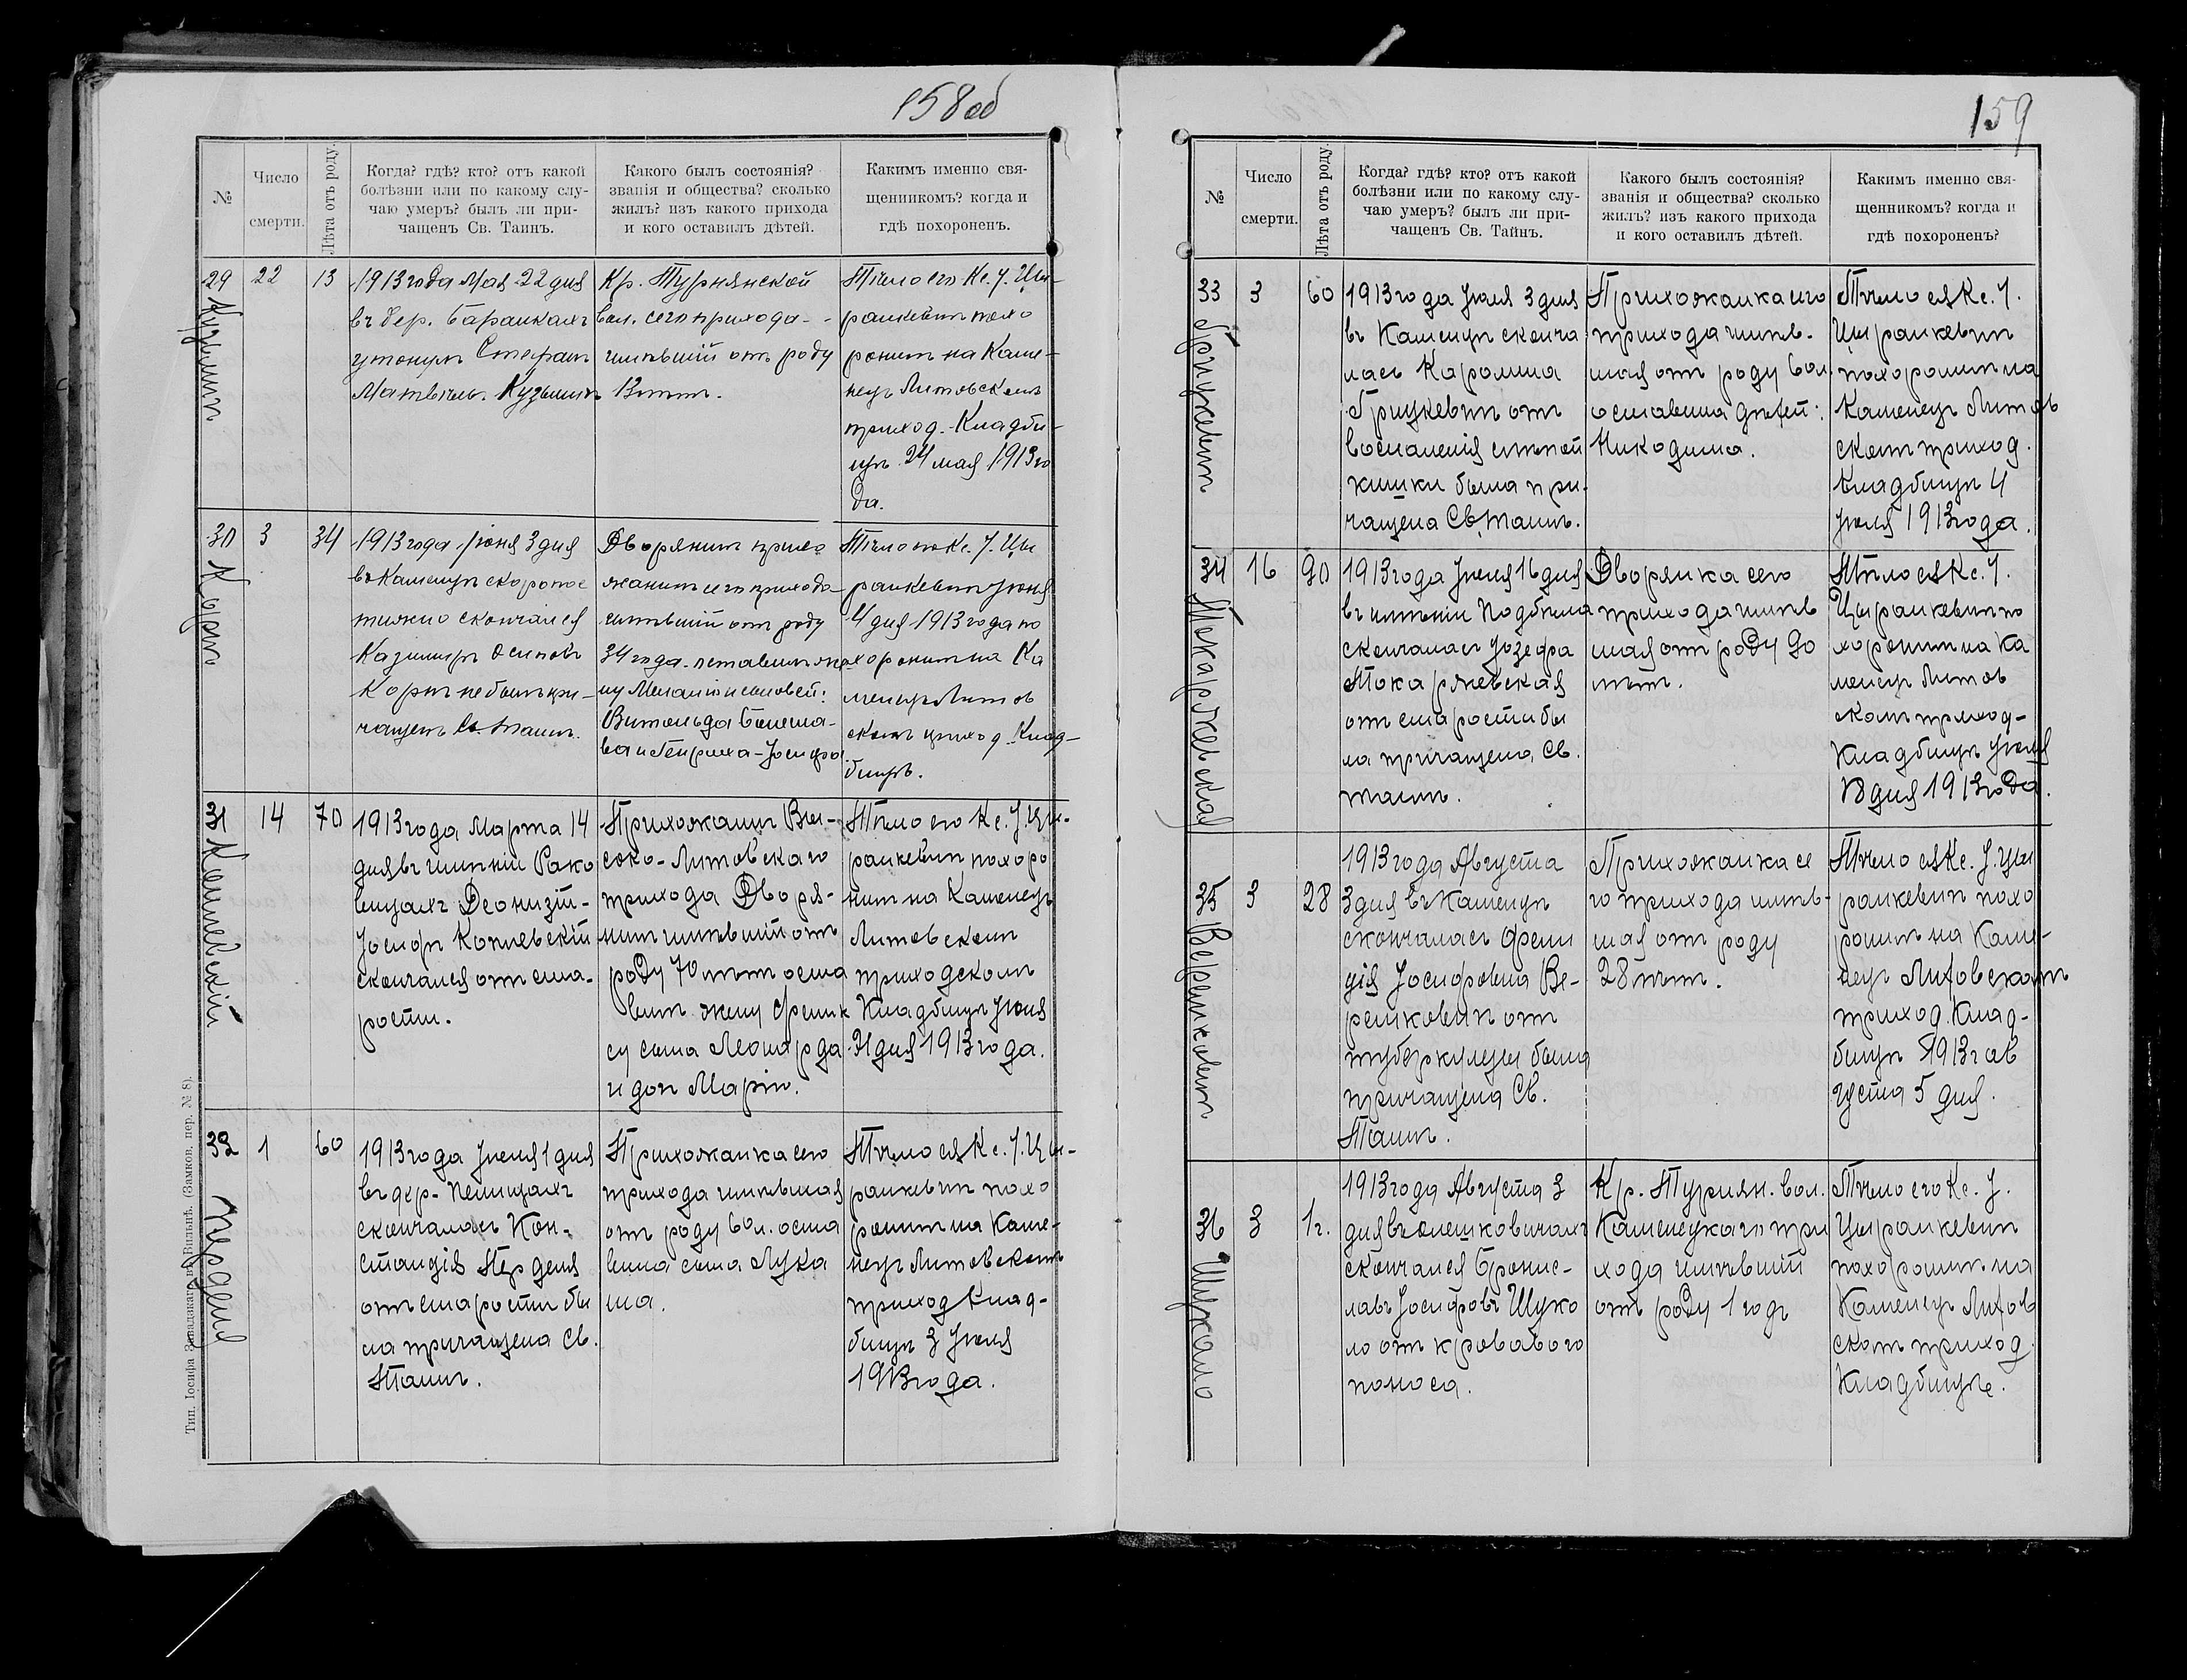 158 об
№
Число
смерти.
Лѣта отъ роду.
Когда? гдѣ? кто? отъ какой
болѣзни или по какому слу-
чаю умеръ? былъ ли при-
чащенъ Св. Таинъ.
Какого былъ состоянія?
званія и общества? сколько
жилъ? изъ какого прихода
и кого оставилъ дѣтей.
Какимъ именно свя-
щенникомъ? когда и
гдѣ похороненъ.
29
Кузьминъ
22
13
1913 года Мая 22 дня
въ дер. Баранкахъ
утонулъ Стефанъ
Матвѣевъ Кузьминъ
Кр. Турнянской
вол. сего прихода -
имѣвшій отъ роду
13 лѣтъ.
Тѣло его Кс. І. Цы-
ранкевичъ похо
ронилъ на Каме-
нецъ Литовскомъ
приход. Кладби-
щѣ 24 мая 1913 го
да.
30
Коржъ
3
34
1913 года Іюня 3 дня
въ Каменцѣ скоропос
тижно скончался
Казимиръ Осиповъ
Коржъ не былъ при-
чащенъ Св. Таинъ.
Дворянинъ прихо
жанинъ сего прихода
имѣвшій отъ роду
34 года. оставилъ же
ну Меланію и сыновей:
Витольда Болесла-
ва и Генриха-Іосифа
Тѣло его Кс. І. Цы
ранкевичъ Іюня
4 дня 1913 года по
хоронилъ на Ка
менецъ Литов
скомъ приход. Клад-
бищѣ.
31
Копчевскій
14
70
1913 года Марта 14
дня въ имѣніи Рако
вицахъ Деонизій-
Іосифъ Копчевскій
скончался отъ ста-
рости.
Прихожанинъ Вы-
соко-Литовскаго
прихода Дворя-
нинъ имѣвшій отъ
роду 70 лѣтъ оста
вилъ жену Фелик
су сына Леонарда
и доч. Марію.
Тѣло его Кс. І. Цы-
ранкевичъ похоро
нилъ на Каменецъ
Литовскомъ
приходскомъ
Кладбищѣ Іюня
21 дня 1913 года.
32
Перденя
1
60
1913 года Іюля 1 дня
въ дер. Пелищахъ
скончалась Кон-
станція Перденя
отъ старости бы
ла причащена Св.
Таинъ.
Прихожанка сего
прихода имѣвшая
отъ роду 60 л. оста
вила сына Лука
ша.
Тѣло ея Кс. І. Цы-
ранкевичъ похо
ронилъ на Каме-
нецъ Литовскомъ
приход Клад-
бищѣ 3 Іюля
1913 года.
Тип. Іосифа Завадзкаго въ Вильнѣ. (Замков. пер. № 8).
159
№
Число
смерти.
Лѣта отъ роду.
Когда? гдѣ? кто? отъ какой
болѣзни или по какому слу-
чаю умеръ? былъ ли при-
чащенъ Св. Тайнъ.
Какого былъ состоянія?
званія и общества? сколько
жилъ? изъ какого прихода
и кого оставилъ дѣтей.
Какимъ именно свя-
щенникомъ? когда и
гдѣ похороненъ?
33
Грицкевичъ
3
60
1913 года Іюля 3 дня
въ Каменцѣ сконча
лась Каролина
Грицкевичъ отъ
воспаленія слѣпой
кишки была при-
чащена Св. Таинъ.
Прихожанка сего
прихода имѣв-
шая отъ роду 60 л.
оставила дѣтей:
Никодима.
Тѣло ея Кс. І.
Цыранкевичъ
похоронилъ на
Каменецъ Литов
скомъ приход.
кладбищѣ 4
Іюля 1913 года.
34
Токаржевская
16
90
1913 года Іюля 16 дня
въ имѣніи Подбѣла
скончалась Іозефа
Токаржевская
отъ старости бы
ла причащена Св.
Таинъ.
Дворянка сего
прихода имѣв
шая отъ роду 90
лѣтъ.
Тѣло ея Кс. І.
Цыранкевичъ по
хоронилъ на Ка
менецъ Литов
скомъ приход-
Кладбищѣ Іюля
18 дня 1913 года.
35
Веремковичъ
3
28
1913 года Августа
3 дня въ Каменцѣ
скончалась Фели
ція Іосифовна Ве-
ремковичъ отъ
туберкулеза была
причащена Св.
Таинъ.
Прихожанка се
го прихода имѣв-
шая отъ роду
28 лѣтъ.
Тѣло ея Кс. І. Цы
ранкевичъ похо
ронилъ на Каме-
нецъ Литовскомъ
приход. Клад-
бищѣ 1913 г ав
густа 5 дня.
36
Шукало
3
1 г.
1913 года Августа 3
дня въ Олешковичахъ
скончался Бронис-
лавъ Іосифовъ Шука
ло отъ кроваваго
поноса.
Кр. Турнян. вол.
Каменецкаго при
хода имѣвшій
отъ роду 1 годъ
Тѣло его Кс. І.
Цыранкевичъ
похоронилъ на
Каменецъ Литов
скомъ приход.
Кладбищѣ.